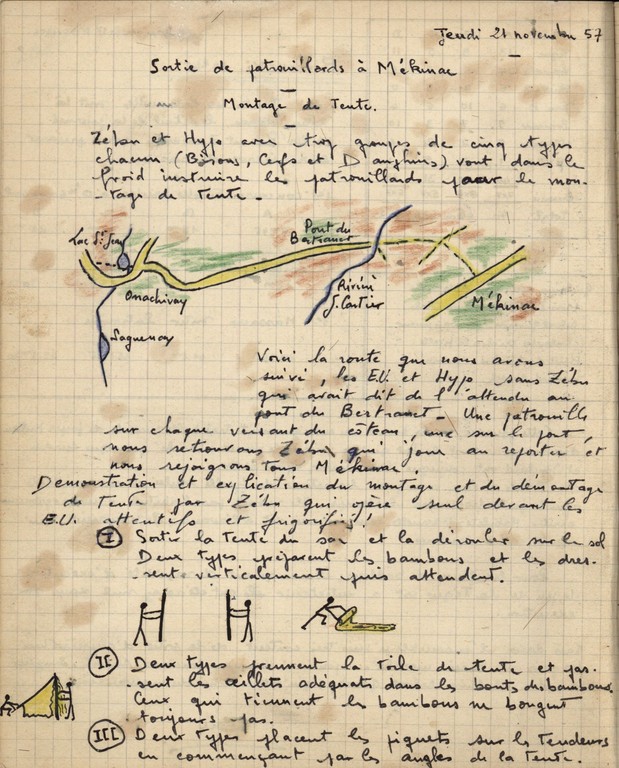 Jeudi 21 novembre 57
Sortie de patrouillards à Mékinac
Montage de Tente.
Zébu et Hyp avec trois groupes de cinq types
chacun (Bisons, Cerfs et Dauphins) vont dans le
froid instruire les patrouillards pour le mon-
-tage de tente.
Lac St Jean
Pont du
Bertranet
Onachivay
Rivière
J. Cartier
Mékinac
Saguenay
Voici la route que nous avons
suivi, les E.U. et Hyp sans Zébu
qui avait dit de l'attendre au
pont du Bertranet. Une patrouille
sur chaque versant du côteau, une sur le pont,
nous retrouvons Zébu qui joue au reporter et
nous rejoignons tous Mékinac
Demonstration et explication du montage et du démontage
de tente par Zébu qui opère seul devant les
E.U. attentifs et frigorifiés!
I Sortir la tente du sac et la dérouler sur le sol
Deux types préparent les bambous et les dres-
-sent verticalement puis attendent.
II Deux types prennent la toile de tente et pas-
-sent les œillets adéquats dans les bouts des bambous.
Ceux qui tiennent les bambous ne bougent
toujours pas.
III Deux types placent les piquets sur les tendeurs
en commençant par les angles de la tente.